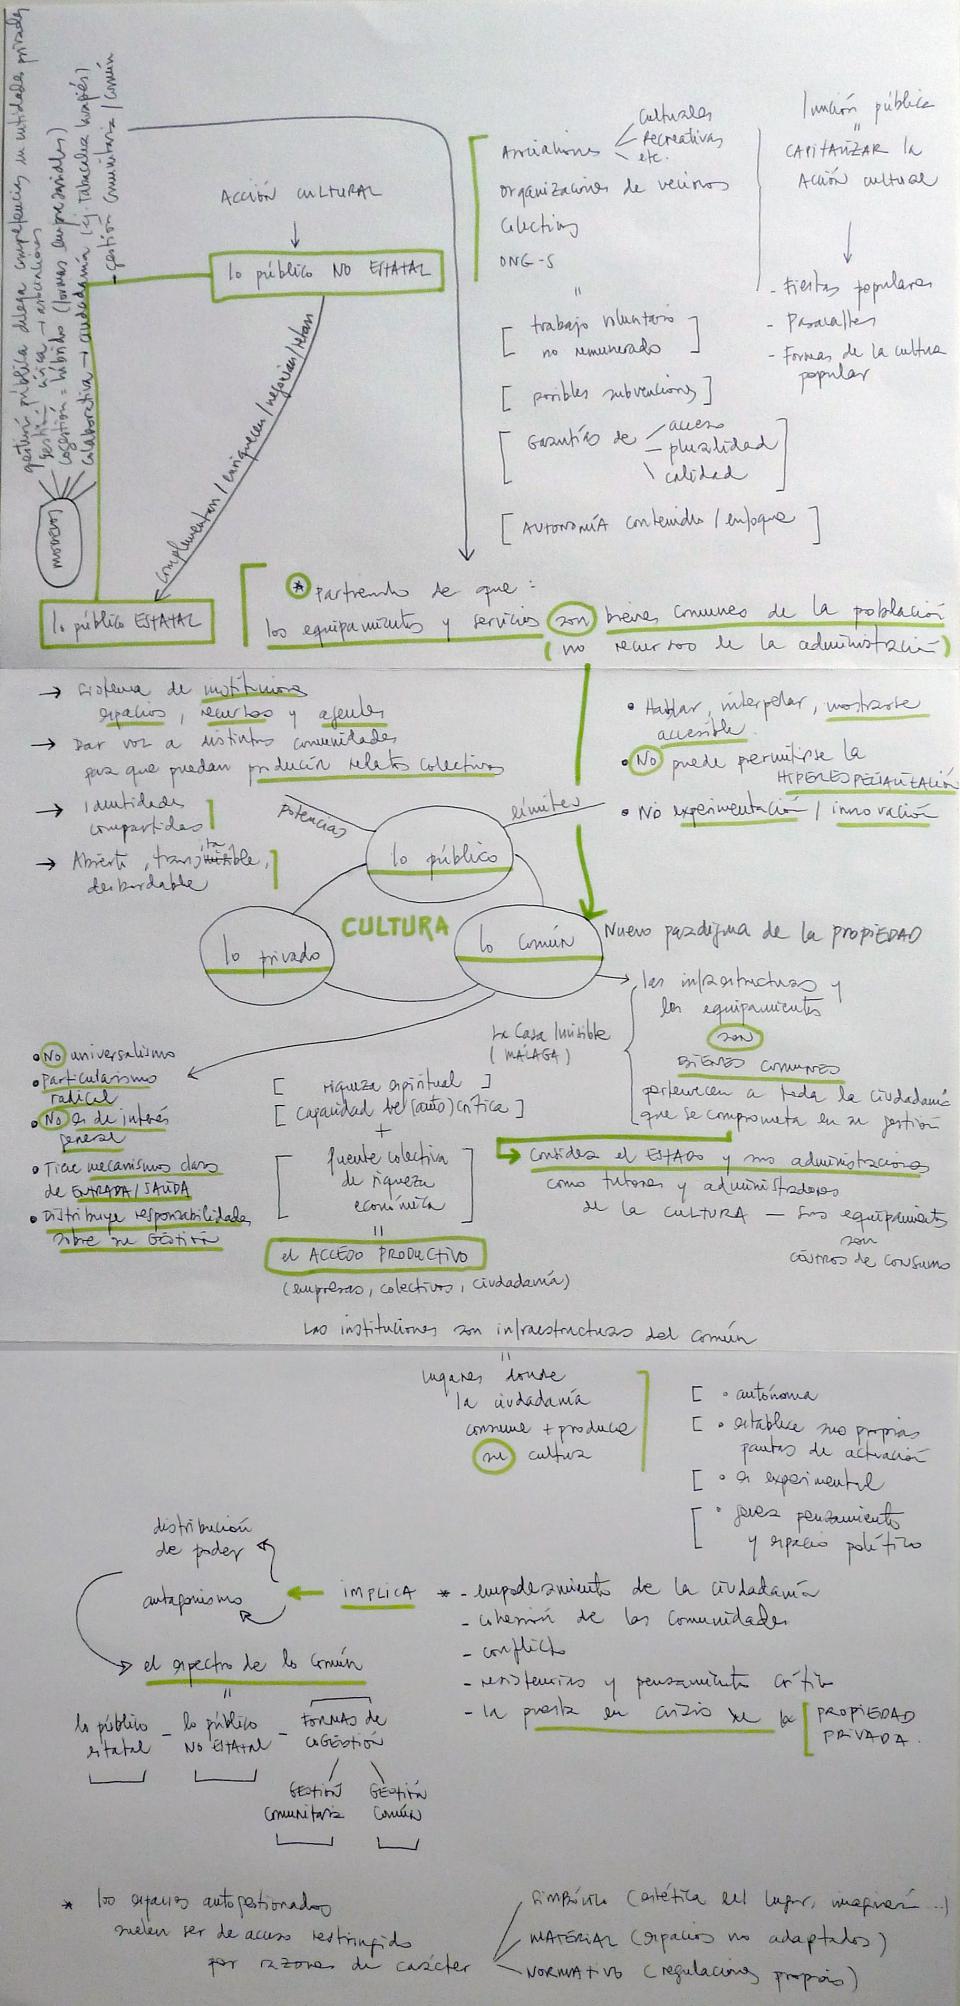 gestión pública delega competencias en entidades privadas
gestión cívica → asociaciones
cogestión = híbrido (formas empresariales)
colaborativa → ciudadanía (ej. Tabacalera Lavapiés)
gestión comunitaria / común
modelos
ACCIÓN CULTURAL
lo público NO ESTATAL
complementan / enriquecen / negocian / retan
lo público ESTATAL
Asociaciones
culturales
recreativas
etc.
Organizaciones de vecinos
Colectivos
ONG-s
"
[ trabajo voluntario
no remunerado ]
[ posibles subvenciones ]
[ Garantías de
acceso
pluralidad
calidad ]
[ AUTONOMÍA contenidos / enfoque ]
función pública
"
CAPITALIZAR la
Acción cultural
- Fiestas populares
- Pasacalles
- Formas de la cultura
popular
* Partiendo de que :
los equipamientos y servicios son bienes comunes de la población
( no recursos de la administración )
→ Sistema de instituciones
espacios, recursos y agentes
→ Dar voz a distintas comunidades
para que puedan producir relatos colectivos
→ Identidades
compartidas
→ Abierto, transitable,
desbordable
potencias
límites
• Hablar, interpelar, mostrarse
accesible.
• No puede permitirse la
HIPERESPECIALIZACIÓN
• No experimentación / innovación
lo público
CULTURA
lo privado
lo común
Nuevo paradigma de la PROPIEDAD
las infraestructuras y
los equipamientos
son
BIENES COMUNES
pertenecen a toda la ciudadanía
que se comprometa en su gestión
La Casa Invisible
(MÁLAGA)
• No universalismo
• Particularismo
radical
• No es de interés
general
• Tiene mecanismos claros
de ENTRADA/SALIDA
• Distribuye responsabilidades
sobre su GESTIÓN
[ riqueza espiritual ]
[ Capacidad de (auto) crítica ]
+
fuente colectiva
de riqueza
económica
"
el ACCESO PRODUCTIVO
(empresas, colectivos, ciudadanía)
Considera el ESTADO y sus administraciones
como tutores y administradores
de la CULTURA — Sus equipamientos
son
centros de consumo
Las instituciones son infraestructuras del común
"
lugares donde
la ciudadanía
consume + produce
su cultura
[ • autónoma
[ • establece sus propias
pautas de actuación
[ • es experimental
[ • genera pensamiento
y espacio político
distribución
de poder
antagonismo
IMPLICA
* - empoderamiento de la ciudadanía
- cohesión de las comunidades
- conflicto
- resistencias y pensamiento crítico
- la puesta en crisis de la
PROPIEDAD
PRIVADA.
el espectro de lo común
"
lo público
estatal
- lo público
NO ESTATAL
- FORMAS DE
COGESTIÓN
GESTIÓN
Comunitaria
GESTIÓN
COMÚN
* los espacios autogestionados
suelen ser de acceso restringido
por razones de carácter
SIMBÓLICO (estética del lugar, imaginario...)
MATERIAL (espacios no adaptados)
NORMATIVO (regulaciones propias)